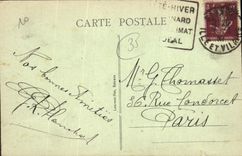 CARTE POSTALE
TÉ-HIVER
NARD
IMAT
DÉAL
ILLE ET VIL
Nos bonnes Amitiés
Mr G. Thomasset
36, Rue Condorcet
Paris